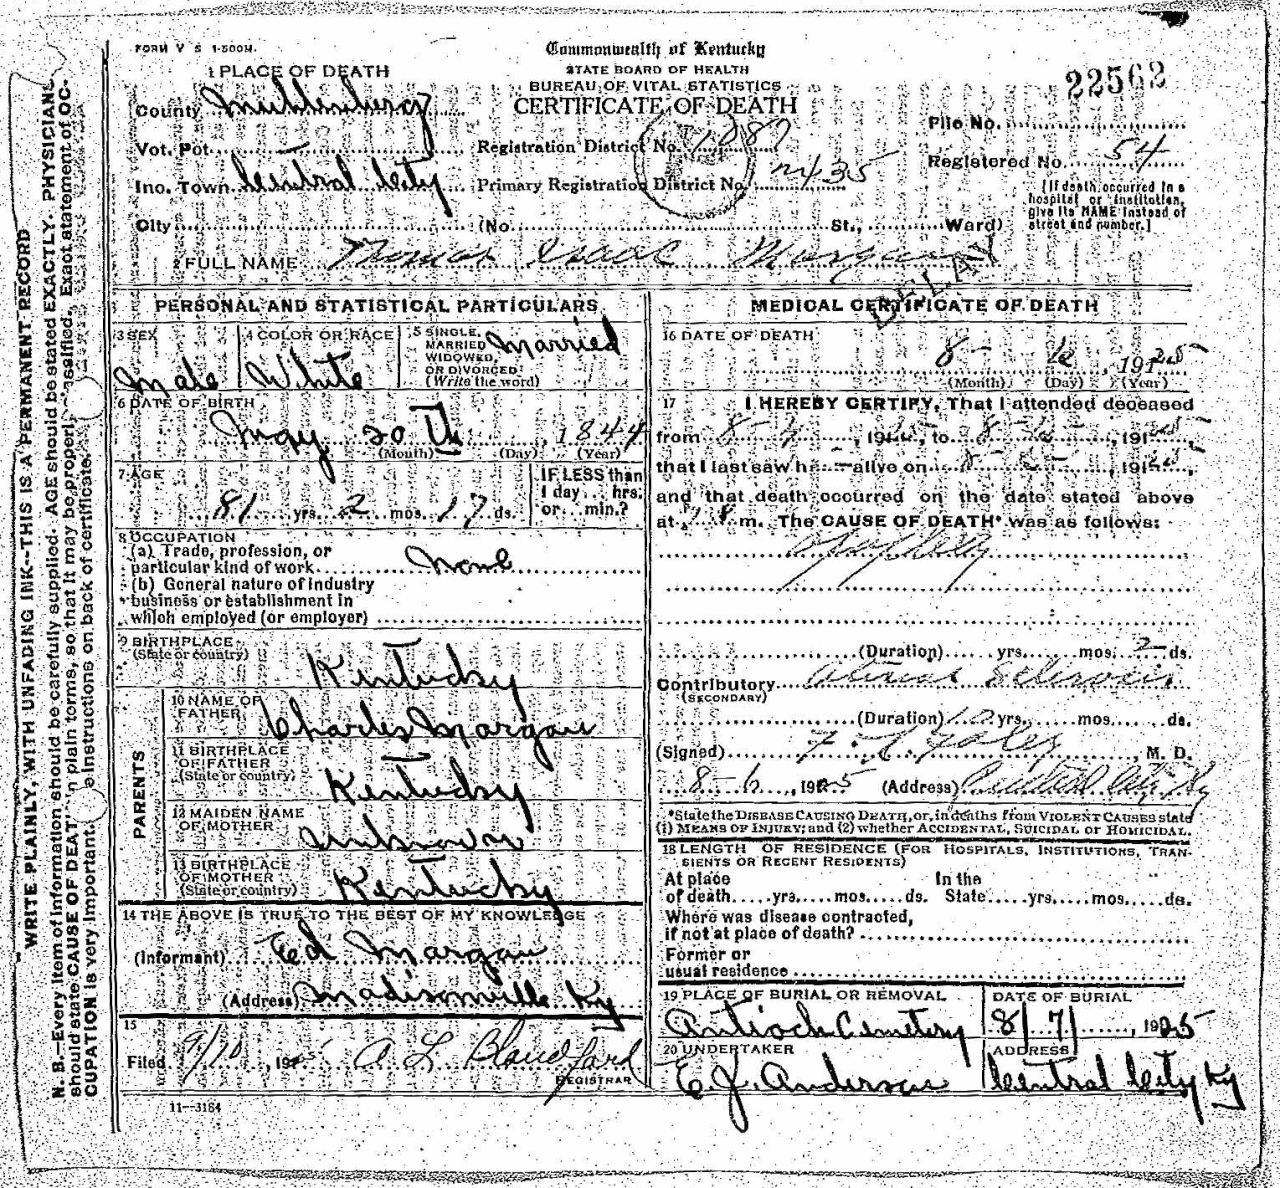 FORM V S 1-500M.
Commonwealth of Kentucky
STATE BOARD OF HEALTH
BUREAU OF VITAL STATISTICS
CERTIFICATE OF DEATH
22562
1 PLACE OF DEATH
County Muhlenberg
Vot. Pct.
Inc. Town Central City
City (No. St., Ward)
Registration District No. 1887
Primary Registration District No. 2435
File No.
Registered No. 54
[If death occurred in a hospital or institution, give its NAME instead of street and number.]
2 FULL NAME Thomas Isaac Morgan
DELAY
PERSONAL AND STATISTICAL PARTICULARS
3 SEX Male
4 COLOR OR RACE White
5 SINGLE, MARRIED WIDOWED, OR DIVORCED (Write the word) Married
6 DATE OF BIRTH
May 20th, 1844
(Month) (Day) (Year)
7 AGE
81 yrs. 2 mos. 17 ds.
IF LESS than 1 day... hrs. or... min.?
8 OCCUPATION
(a) Trade, profession, or particular kind of work None
(b) General nature of industry
business or establishment in
which employed (or employer)
9 BIRTHPLACE
(State or country) Kentucky
PARENTS
10 NAME OF FATHER Charles Morgan
11 BIRTHPLACE OF FATHER (State or country) Kentucky
12 MAIDEN NAME OF MOTHER Unknown
13 BIRTHPLACE OF MOTHER (State or country) Kentucky
14 THE ABOVE IS TRUE TO THE BEST OF MY KNOWLEDGE
(Informant) Ed Morgan
(Address) Madisonville Ky
15
Filed 9/10, 19 A L Blandford
REGISTRAR
11—3184
MEDICAL CERTIFICATE OF DEATH
16 DATE OF DEATH
8- 6, 1925
(Month) (Day) (Year)
17 I HEREBY CERTIFY, That I attended deceased
from 8-4, 1925, to 8-, 1925,
that I last saw h alive on 8-, 1925,
and that death occurred on the date stated above
at m. The CAUSE OF DEATH* was as follows:
Apoplexy
(Duration) yrs. mos. 2 ds.
Contributory Arterial Sclerosis
(SECONDARY)
(Duration) 10 yrs. mos. ds.
(Signed) M. D.
8-6, 1925 (Address) Central City Ky
*State the DISEASE CAUSING DEATH, or, in deaths from VIOLENT CAUSES state
(1) MEANS OF INJURY; and (2) whether ACCIDENTAL, SUICIDAL or HOMICIDAL.
18 LENGTH OF RESIDENCE (FOR HOSPITALS, INSTITUTIONS, TRAN-
SIENTS OR RECENT RESIDENTS)
At place In the
of death yrs. mos. ds. State yrs. mos. ds.
Where was disease contracted,
if not at place of death?
Former or
usual residence
19 PLACE OF BURIAL OR REMOVAL Antioch Cemetery
DATE OF BURIAL 8/7/, 1925
20 UNDERTAKER E. J. Anderson
ADDRESS Central City Ky
WRITE PLAINLY, WITH UNFADING INK--THIS IS A PERMANENT RECORD
N. B.—Every item of information should be carefully supplied. AGE should be stated EXACTLY. PHYSICIANS
should state CAUSE OF DEATH in plain terms, so that it may be properly classified. Exact statement of OC-
CUPATION is very important. See instructions on back of certificate.